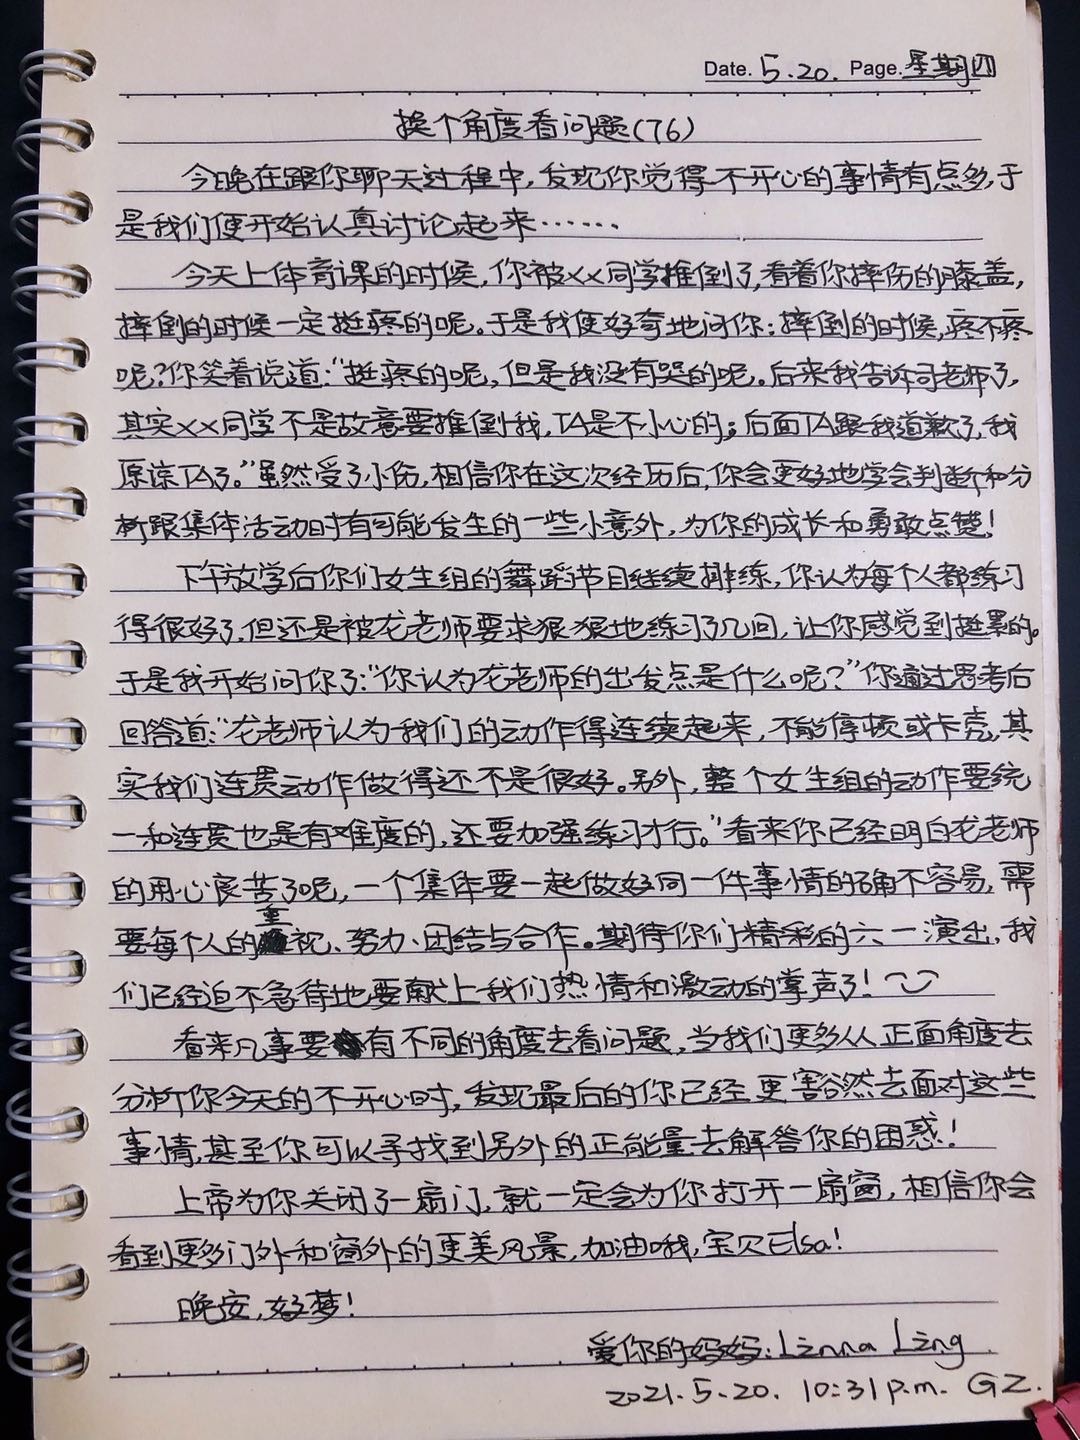 Date. 5.20. Page. 星期四
换个角度看问题(76)
今晚在跟你聊天过程中,发现你觉得不开心的事情有点多,于
是我们便开始认真讨论起来……
今天上体育课的时候,你被××同学推倒了,看着你摔伤的膝盖,
摔倒的时候一定挺疼的呢。于是我便好奇地问你:摔倒的时候,疼不疼
呢?你笑着说道:“挺疼的呢,但是我没有哭的呢。后来我告诉司老师了,
其实××同学不是故意要推倒我,TA是不小心的;后面TA跟我道歉了,我
原谅TA了。”虽然受了小伤,相信你在这次经历后,你会更好地学会判断和分
析跟集体活动时有可能发生的一些小意外,为你的成长和勇敢点赞!
下午放学后你们女生组的舞蹈节目继续排练,你认为每个人都练习
得很好了,但还是被龙老师要求狠狠地练习了几回,让你感觉到挺累的。
于是我开始问你了:“你认为龙老师的出发点是什么呢?”你通过思考后
回答道:“龙老师认为我们的动作得连续起来,不能停顿或卡壳,其
实我们连贯动作做得还不是很好。另外,整个女生组的动作要统
一和连贯也是有难度的,还要加强练习才行。”看来你已经明白龙老师
的用心良苦了呢,一个集体要一起做好同一件事情的确不容易,需
要每个人的重视、努力、团结与合作。期待你们精彩的六一演出,我
们已经迫不急待地要献上我们热情和激动的掌声了!
看来凡事要有不同的角度去看问题,当我们更多从正面角度去
分析你今天的不开心时,发现最后的你已经更豁然去面对这些
事情,甚至你可以寻找到另外的正能量去解答你的困惑!
上帝为你关闭了一扇门,就一定会为你打开一扇窗,相信你会
看到更多门外和窗外的更美风景,加油哦,宝贝Elsa!
晚安,好梦!
爱你的妈妈:Linna Ling
2021.5.20. 10:31p.m. GZ.